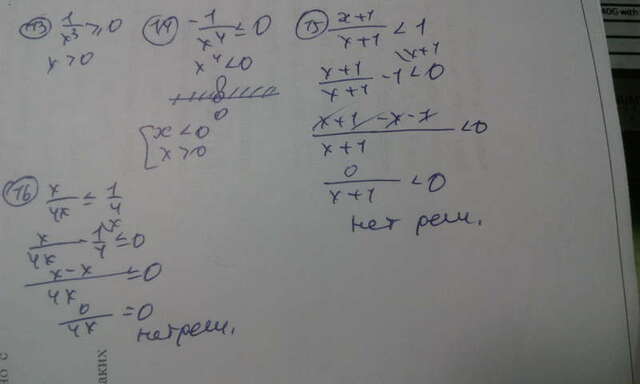 13) 1/x³ ≥ 0
x > 0
14) -1/x⁴ ≤ 0
x⁴ < 0
0
x < 0
x > 0
15) x+1/x+1 < 1
x+1/x+1 - 1 \x+1 < 0
x+1-x-1/x+1 < 0
0/x+1 < 0
нет реш.
16) x/4x ≤ 1/4
x/4x - 1\x/4 ≤ 0
x-x/4x ≤ 0
0/4x = 0
нет реш.